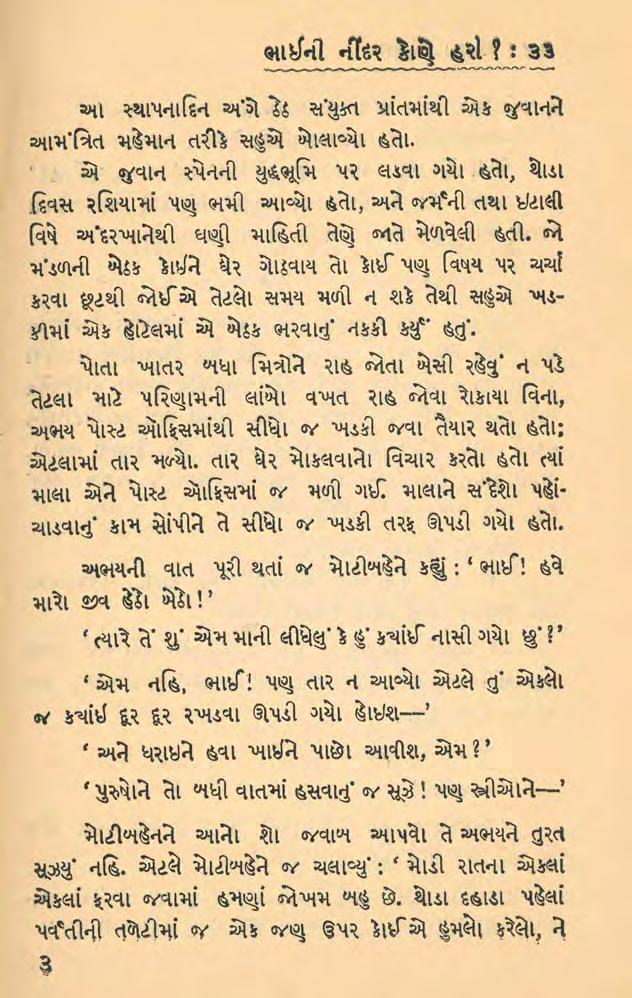 ભાઈની નીંદર કોણે હરી ? : ૩૩
આ સ્થાપનાદિન અંગે ઠેઠ સંયુક્ત પ્રાંતમાંથી એક જુવાનને
આમંત્રિત મહેમાન તરીકે સહુએ બોલાવ્યો હતો.
એ જુવાન સ્પેનની યુદ્ધભૂમિ પર લડવા ગયો હતો, થોડા
દિવસ રશિયામાં પણ ભમી આવ્યો હતો, અને જર્મની તથા ઇટાલી
વિષે અંદરખાનેથી ઘણી માહિતી તેણે જાતે મેળવેલી હતી. જો
મંડળની બેઠક કોઈને ઘેર ગોઠવાય તો કોઈ પણ વિષય પર ચર્ચા
કરવા છૂટથી જોઈએ તેટલો સમય મળી ન શકે તેથી સહુએ ખડ-
કીમાં એક હોટેલમાં એ બેઠક ભરવાનું નક્કી કર્યું હતું.
પોતા ખાતર બધા મિત્રોને રાહ જોતા બેસી રહેવું ન પડે
તેટલા માટે પરિણામની લાંબો વખત રાહ જોવા રોકાયા વિના,
અભય પોસ્ટ ઓફિસમાંથી સીધો જ ખડકી જવા તૈયાર થતો હતો;
એટલામાં તાર મળ્યો. તાર ઘેર મોકલવાનો વિચાર કરતો હતો ત્યાં
માલા એને પોસ્ટ ઑફિસમાં જ મળી ગઈ. માલાને સંદેશો પહોં-
ચાડવાનું કામ સોંપીને તે સીધો જ ખડકી તરફ ઊપડી ગયો હતો.
અભયની વાત પૂરી થતાં જ મોટીબહેને કહ્યું : ‘ ભાઈ! હવે
મારો જીવ હેઠો બેઠો!’
‘ ત્યારે તેં શું એમ માની લીધેલું કે હું ક્યાંઈ નાસી ગયો છું ?’
‘ એમ નહિ, ભાઈ! પણ તાર ન આવ્યો એટલે તું એકલો
જ ક્યાંઈ દૂર દૂર રખડવા ઊપડી ગયો હોઇશ—’
‘ અને ધરાઇને હવા ખાઈને પાછો આવીશ, એમ ?’
‘ પુરુષોને તો બધી વાતમાં હસવાનું જ સૂઝે! પણ સ્ત્રીઓને—’
મોટીબહેનને આનો શો જવાબ આપવો તે અભયને તુરત
સૂઝયું નહિ. એટલે મોટીબહેને જ ચલાવ્યું : ‘ મોડી રાતના એકલાં
એકલાં ફરવા જવામાં હમણાં જોખમ બહુ છે. થોડા દહાડા પહેલાં
પર્વતીની તળેટીમાં જ એક જણ ઉપર કોઈએ હુમલો કરેલો, ને
૩